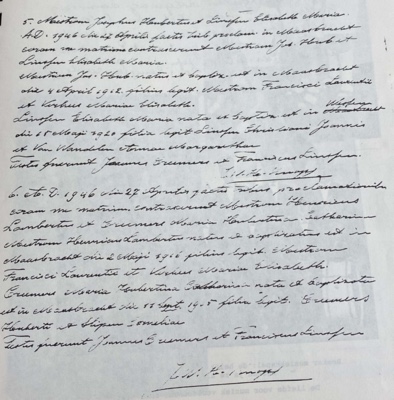 5. Meestrum Josephus Hubertus et Linssen Elisabeth Maria.
A.D. 1946 die 22 Aprilis factis trib. proclam. in Maasbracht
coram me matrim. contraxerunt Meestrum Jos. Hub. et
Linssen Elisabeth Maria.
Meestrum Jos. Hub. natus et baptiz. est in Maasbracht
die 4 April 1912. filius legit. Meestrum Francisci Laurentii
et Verkus Mariae Elisabeth.
Linssen Elisabeth Maria nata et baptiz. est in
die 15 Maji 1920 filia legit. Linssen Christiani Joannis
et Van Annae Margarethae
Testes fuerunt Joannes Creemers et Franciscus Linssen.
6. A.D. 1946 die 27 Aprilis factis tribus proclamationib.
coram me matrim. contraxerunt Meestrum Henricus
Lambertus et Creemers Maria Hubertina Catharina
Meestrum Henricus Lambertus natus et baptizatus est in
Maasbracht die 2 Maji 1916 filius legit. Meestrum
Francisci Laurentii et Verkus Mariae Elisabeth.
Creemers Maria Hubertina Catharina nata et baptizata
est in Maasbracht die 15 Sept. 1915 filia legit. Creemers
Huberti et Slijpen Corneliae
Testes fuerunt Joannes Creemers et Franciscus Linssen